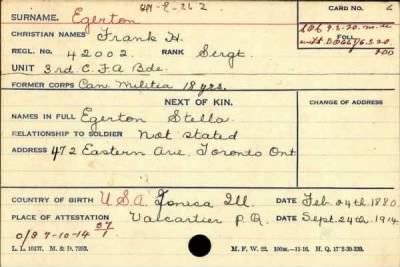 649-E-262
SURNAME. Egerton
CARD NO. 2
CHRISTIAN NAMES Frank H.
S.O.S. 9.3.20.
REGL. NO. 42002. RANK Sergt.
UNIT 3rd. C.F.A Bde.
FORMER CORPS Can. Militia 18 yrs.
NEXT OF KIN.
CHANGE OF ADDRESS
NAMES IN FULL Egerton Stella
RELATIONSHIP TO SOLDIER Not stated
ADDRESS 472 Eastern Ave, Toronto Ont
COUNTRY OF BIRTH U.S.A. Tonica Ill. DATE Feb. 24th 1880.
PLACE OF ATTESTATION Valcartier P.Q. DATE Sept. 24th 1914.
O/S 7-10-14
L. L. 10137. M. & D. 7253. M. F. W. 22. 100m.-11-16. H. Q. 1772-39-339.